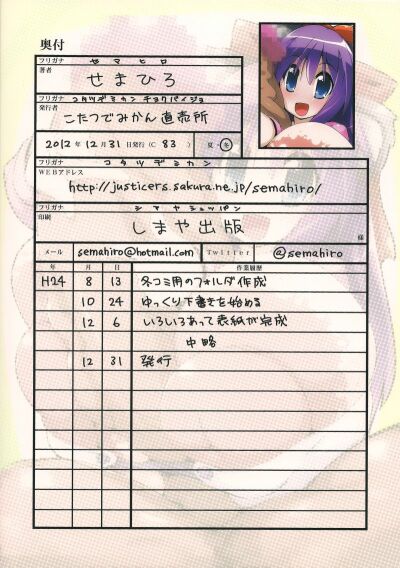 奥付
フリガナ セマヒロ
著者 せまひろ
フリガナ コタツデミカン チョクバイジョ
発行者 こたつでみかん直売所
2012年12月31日発行(C 83 ) 夏・冬
フリガナ コタツデミカン
WEBアドレス http://justicers.sakura.ne.jp/semahiro/
フリガナ シマヤシュッパン
印刷 しまや出版 様
メール semahiro@hotmail.com Twitter @semahiro
年 月 日 作業履歴
H24 8 13 冬コミ用のフォルダ作成
10 24 ゆっくり下書きを始める
12 6 いろいろあって表紙が完成
中略
12 31 発行